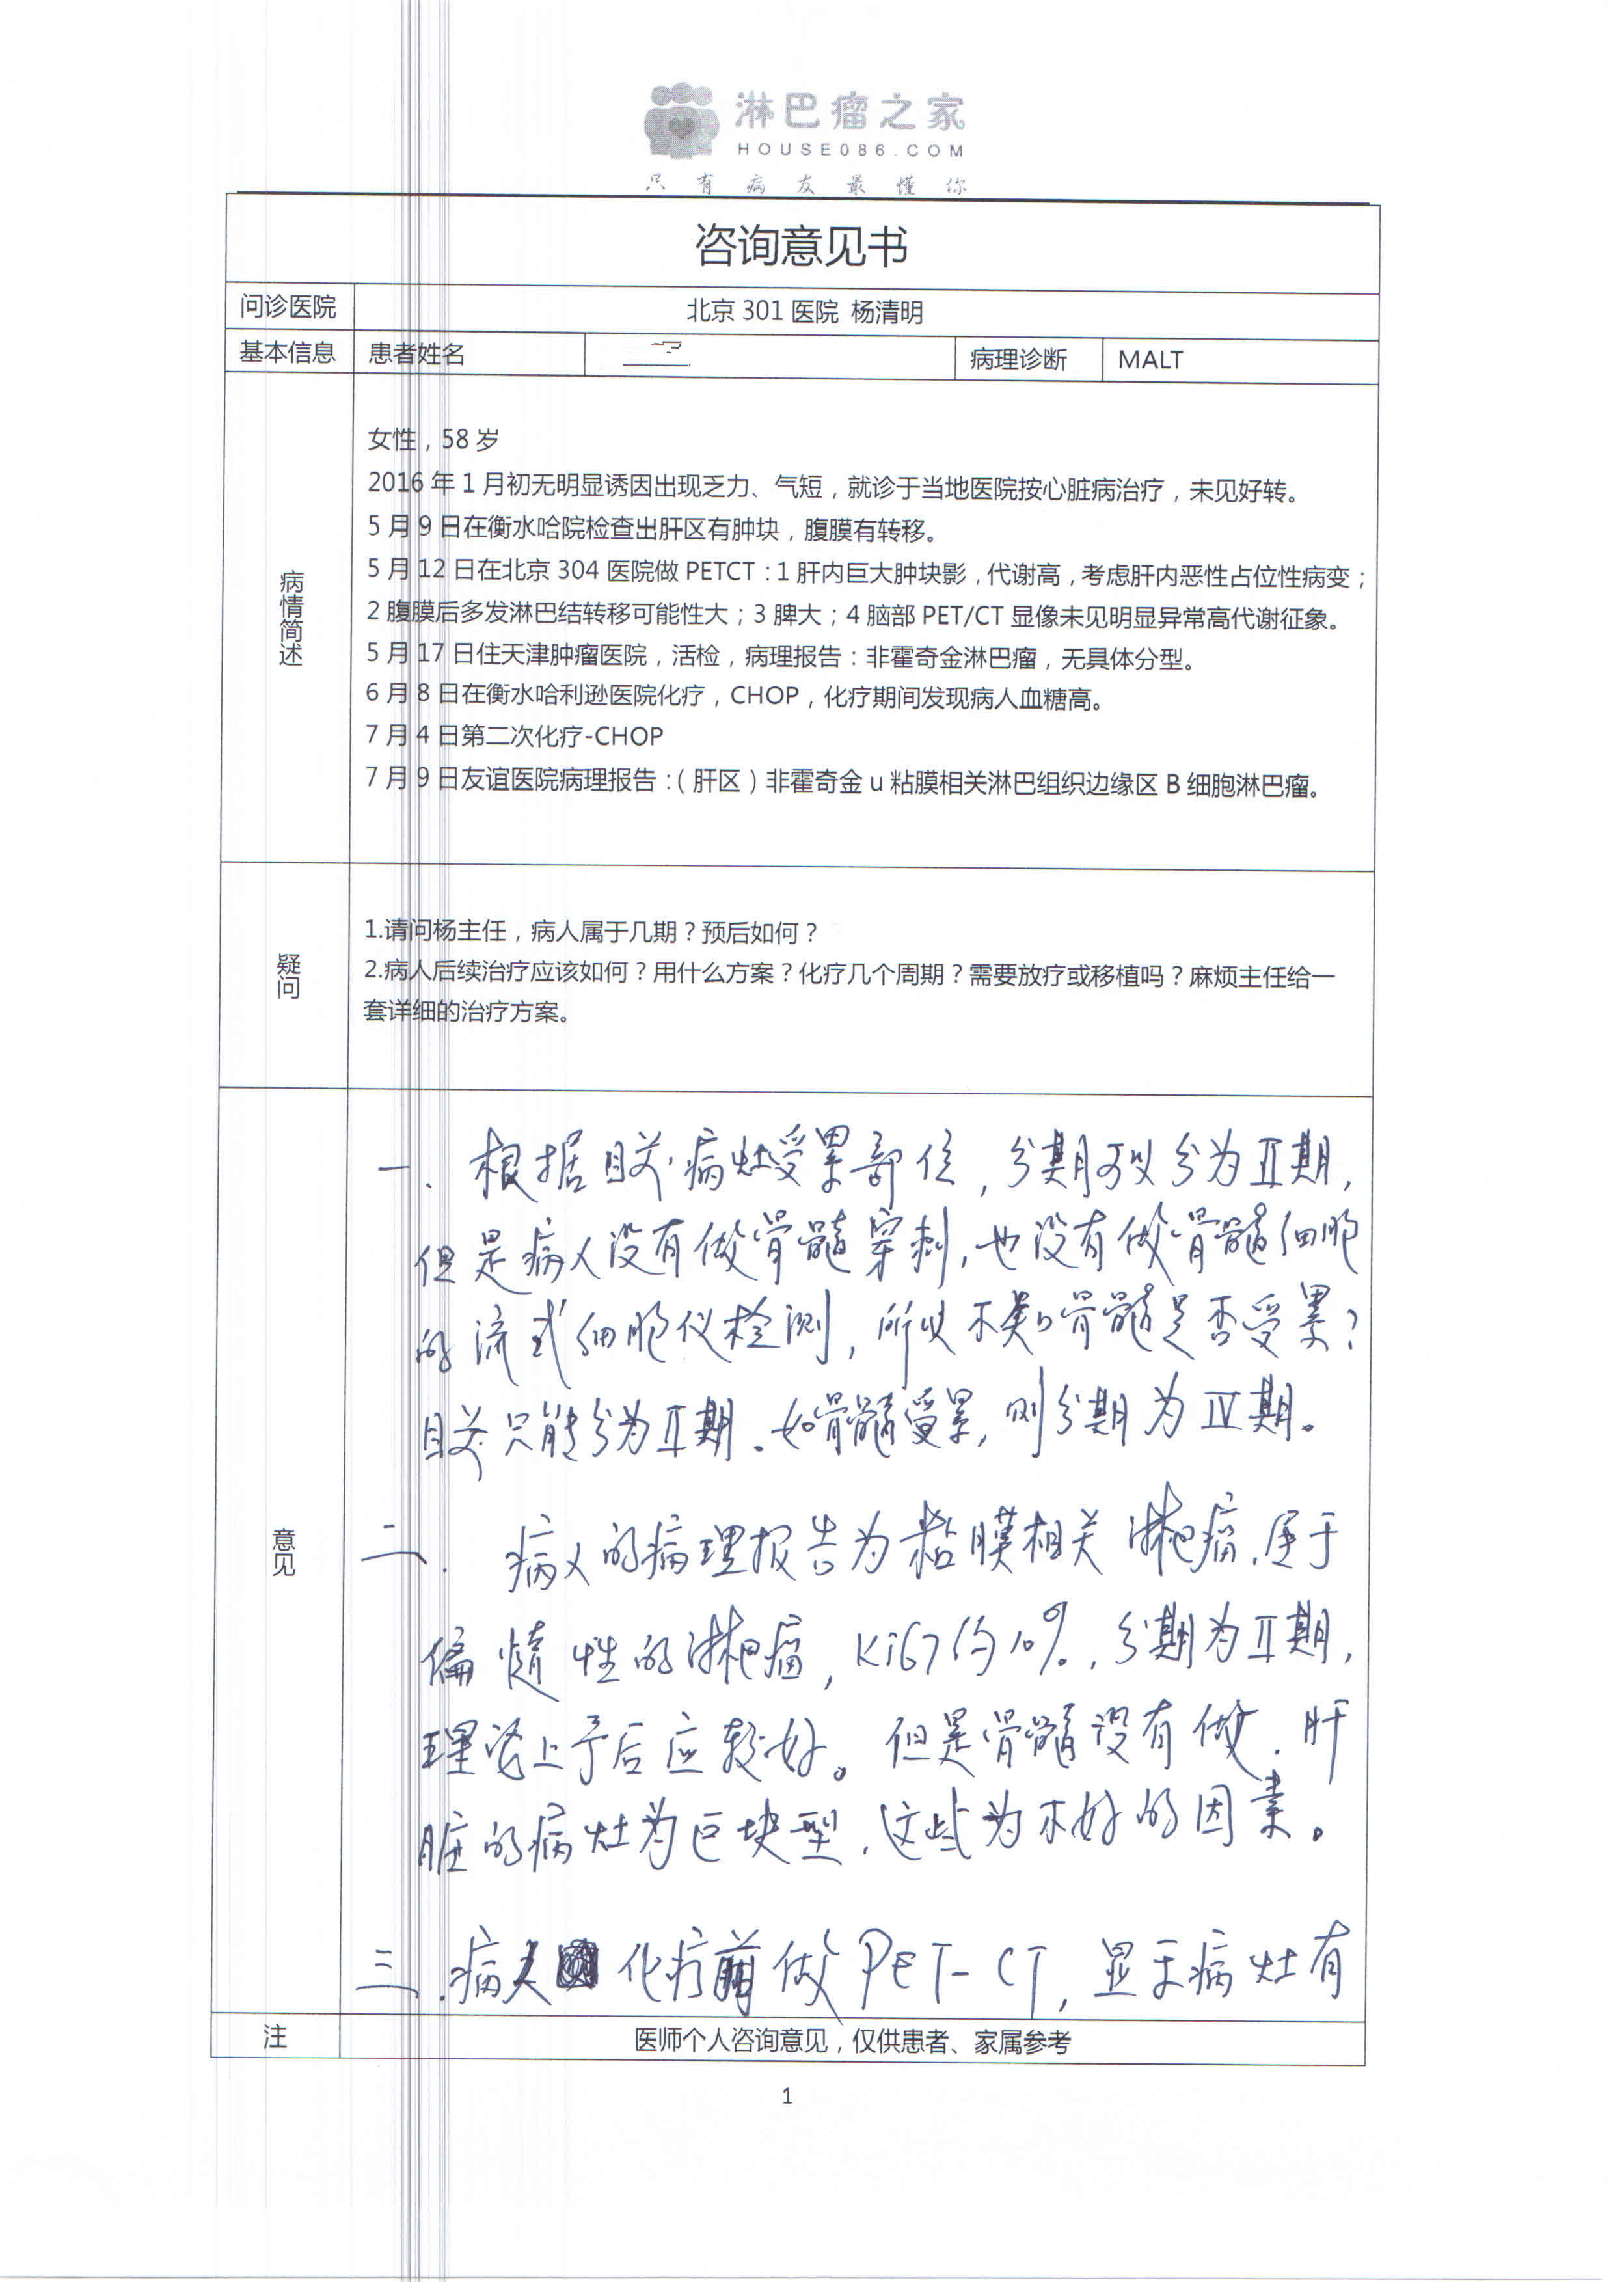 淋巴瘤之家
HOUSE086.COM
只有病友最懂你
咨询意见书
问诊医院 北京 301 医院 杨清明
基本信息 患者姓名 病理诊断 MALT
病情简述
女性，58 岁
2016 年 1 月初无明显诱因出现乏力、气短，就诊于当地医院按心脏病治疗，未见好转。
5 月 9 日在衡水哈院检查出肝区有肿块，腹膜有转移。
5 月 12 日在北京 304 医院做 PETCT：1 肝内巨大肿块影，代谢高，考虑肝内恶性占位性病变；
2 腹膜后多发淋巴结转移可能性大；3 脾大；4 脑部 PET/CT 显像未见明显异常高代谢征象。
5 月 17 日住天津肿瘤医院，活检，病理报告：非霍奇金淋巴瘤，无具体分型。
6 月 8 日在衡水哈利逊医院化疗，CHOP，化疗期间发现病人血糖高。
7 月 4 日第二次化疗-CHOP
7 月 9 日友谊医院病理报告：（肝区）非霍奇金 u 粘膜相关淋巴组织边缘区 B 细胞淋巴瘤。
疑问
1.请问杨主任，病人属于几期？预后如何？
2.病人后续治疗应该如何？用什么方案？化疗几个周期？需要放疗或移植吗？麻烦主任给一
套详细的治疗方案。
意见
一、根据目前病灶受累部位，分期可以分为Ⅱ期，
但是病人没有做骨髓穿刺，也没有做骨髓细胞
的流式细胞仪检测，所以不知骨髓是否受累？
目前只能分为Ⅱ期。如骨髓受累，则分期为Ⅳ期。
二、病人的病理报告为粘膜相关淋巴瘤，属于
偏惰性的淋巴瘤，Ki67约10%，分期为Ⅱ期，
理论上予后应较好。但是骨髓没有做，肝
脏的病灶为巨块型，这些为不好的因素。
三、病人化疗前做PET-CT，显示病灶有
注 医师个人咨询意见，仅供患者、家属参考
1